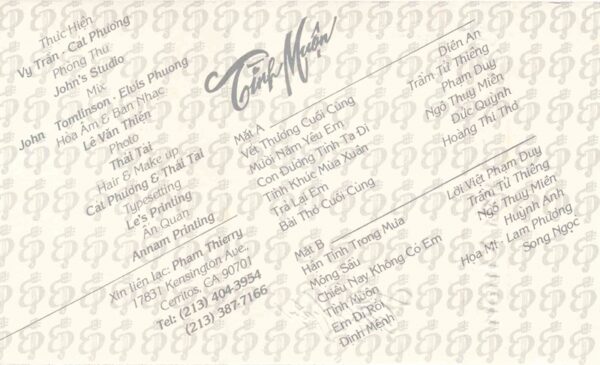 Thực Hiện
Vy Trần - Cat Phương
Phòng Thu
John's Studio
Mix
John Tomlinson - Elvis Phương
Hòa Âm & Ban Nhạc
Lê Văn Thiện
Photo
Thái Tài
Hair & Make up
Cat Phương & Thái Tài
Typesetting
Le's Printing
Ấn Quán
Annam Printing
Xin liên lạc: Phạm Thierry
17831 Kensington Ave.,
Cerritos, CA 90701
Tel: (213) 404-3954
(213) 387-7166
Tình Muộn
Mặt A
Vết Thương Cuối Cùng
Mười Năm Yêu Em
Con Đường Tình Ta Đi
Tình Khúc Mùa Xuân
Trả Lại Em
Bài Thơ Cuối Cùng
Diên An
Trầm Tử Thiêng
Phạm Duy
Ngô Thụy Miên
Đức Quỳnh
Hoàng Thi Thơ
Mặt B
Hận Tình Trong Mưa
Mộng Sầu
Chiều Nay Không Có Em
Tình Muộn
Em Đi Rồi
Định Mệnh
Lời Việt Phạm Duy
Trầm Tử Thiêng
Ngô Thụy Miên
Huỳnh Anh
Họa Mi - Lam Phương
Song Ngọc